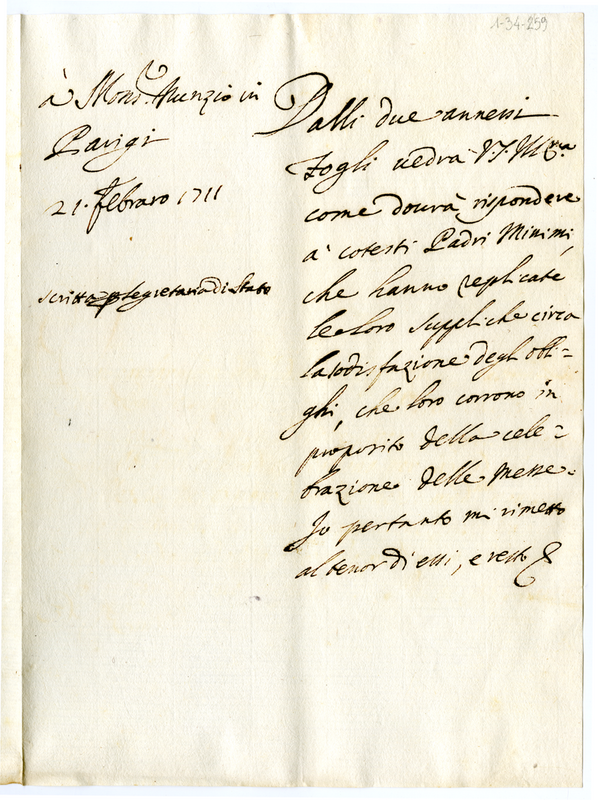 1-34-259
à Mons.r Nunzio in
Parigi
21. Febraro 1711
scritta p Segretaria di Stato
Dalli due annessi
Fogli vedrà V.S. Ill.ma
come dovrà rispondere
à cotesti Padri Minimi,
che hanno replicate
le loro suppliche circa
la sodisfazione degl'obli=
ghi, che loro corrono in
proposito della cele=
brazione delle Messe.
Io pertanto mi rimetto
al tenor di essi, e resto